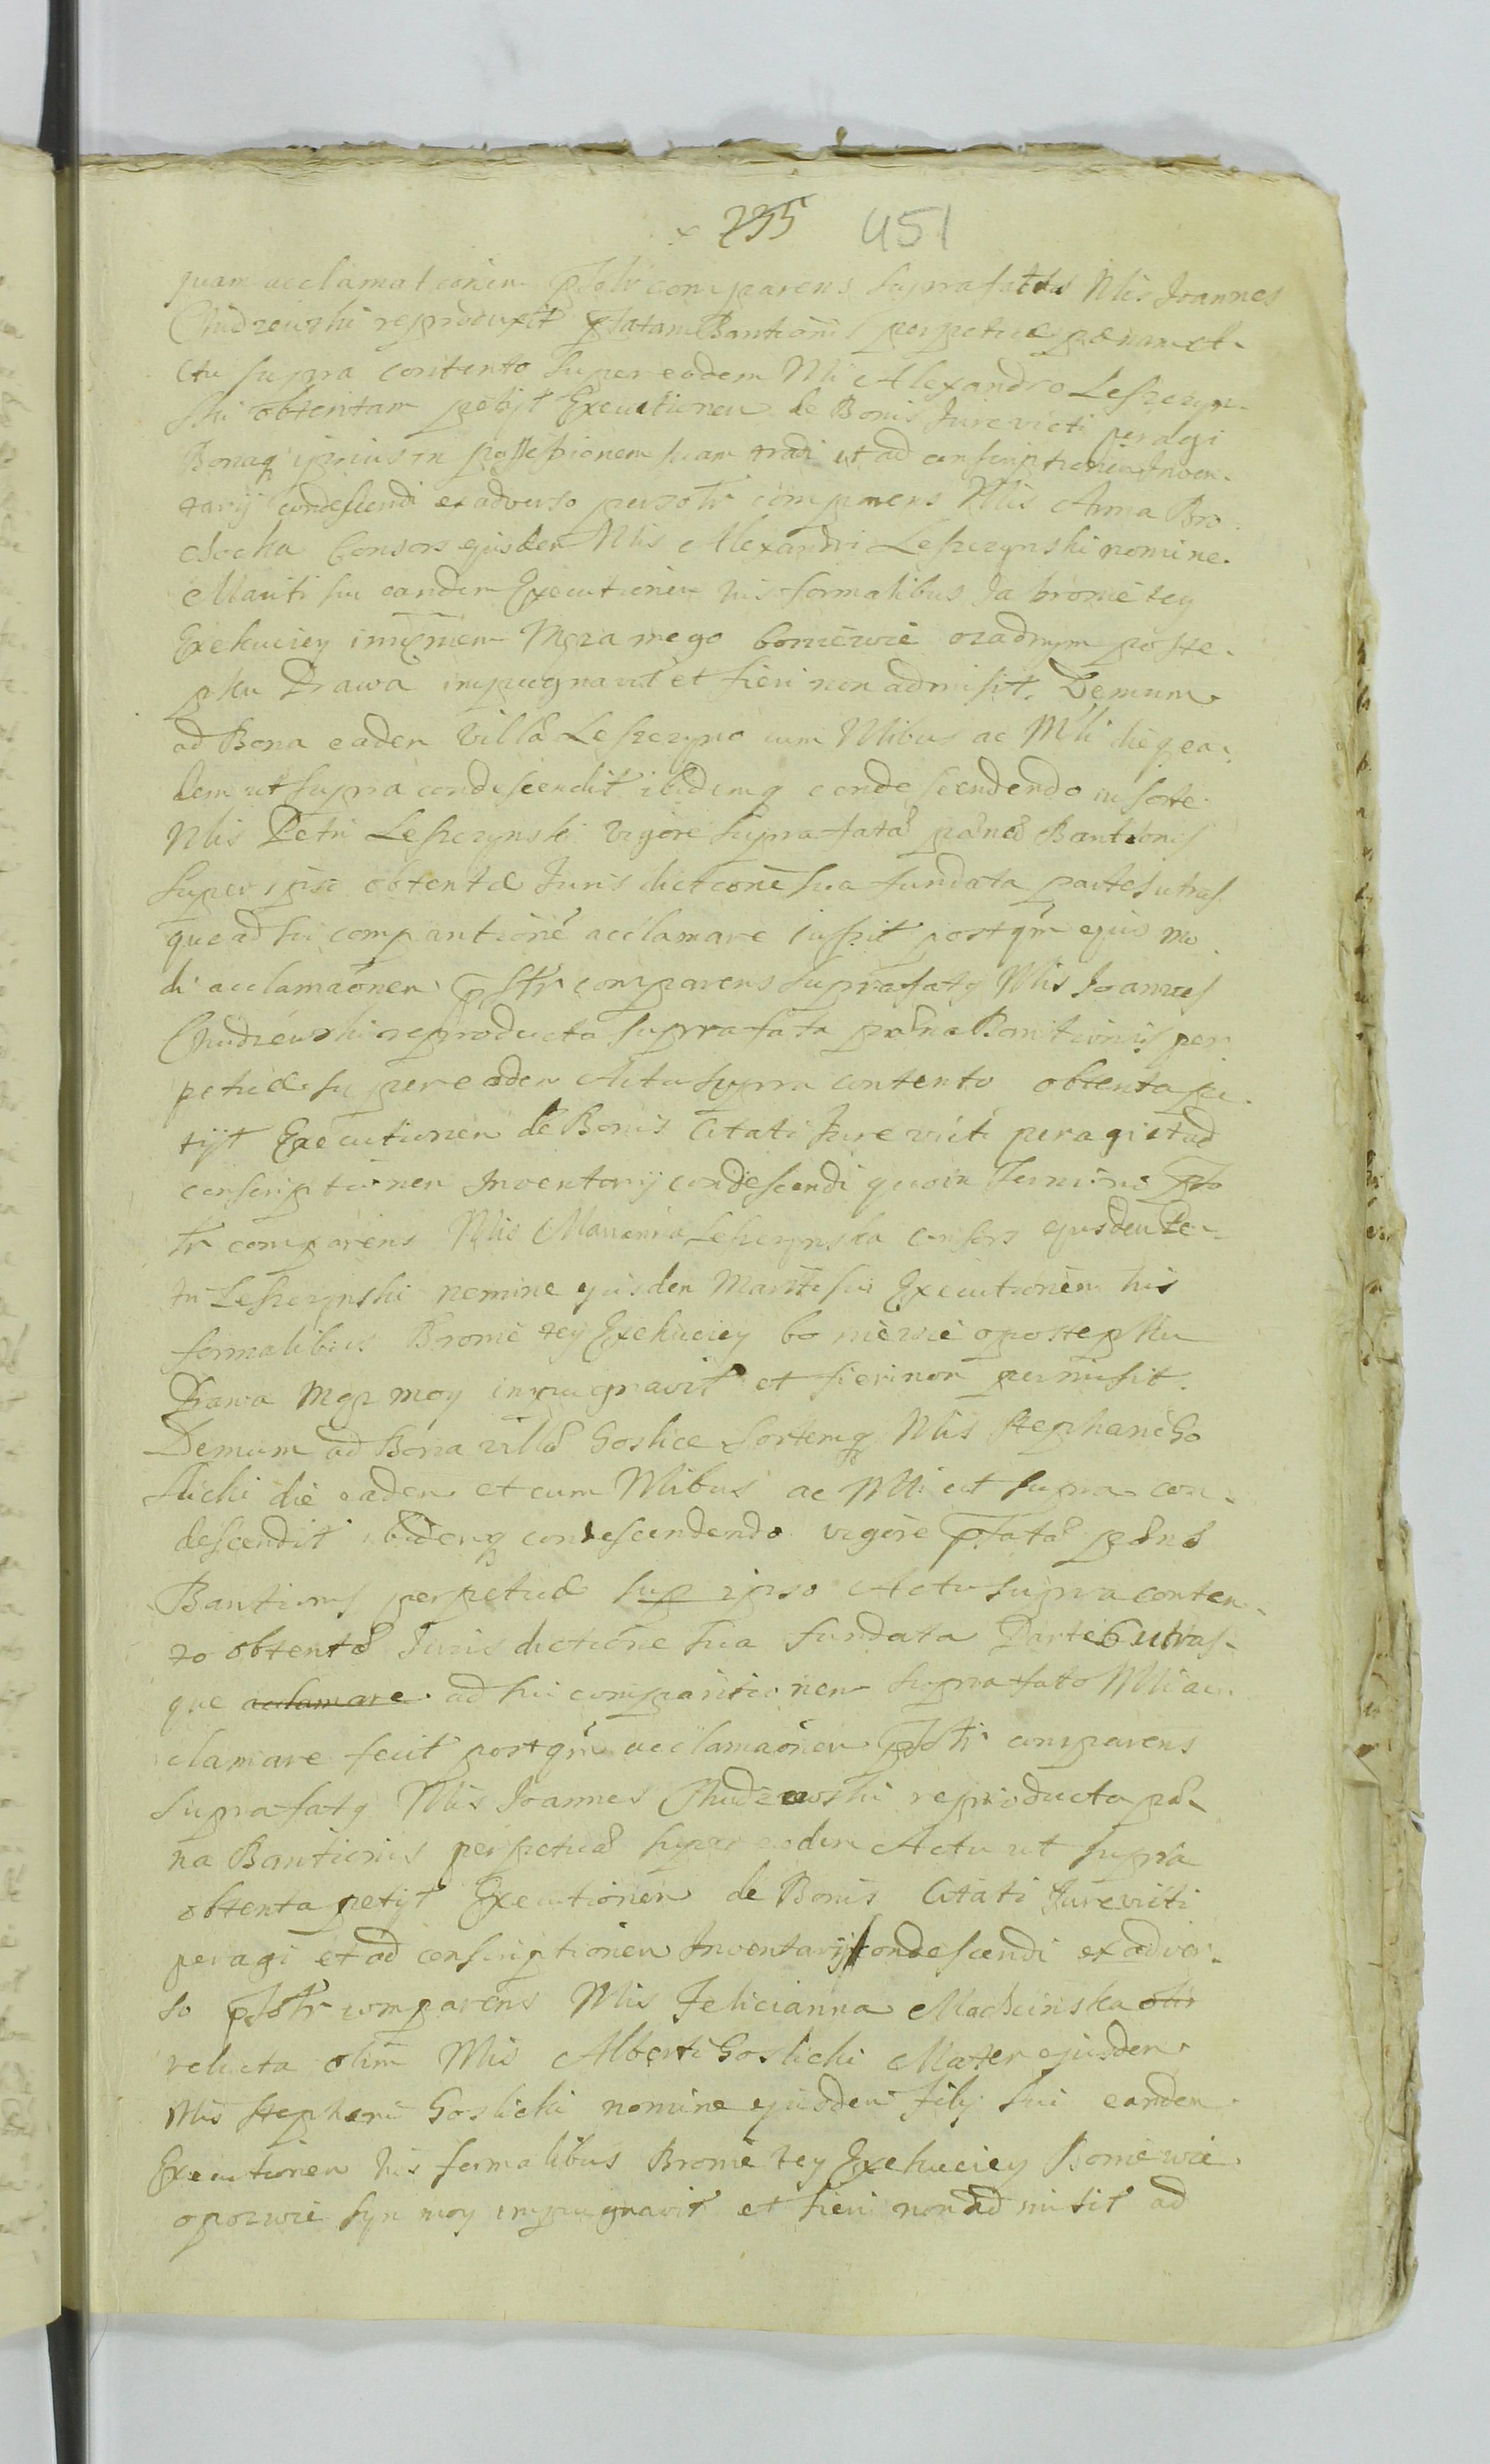 235 451
quam acclamationem psolr comparens suprafattus Nlis Joannes
Chudzewski reproduxit pfatam Bantionis perpetuæ pænam et
ctu supra contento super eodem Nli Alexandro Leszczyn-
ski obtentam petijt Executionem de Bonis Jurevicti peragi
Bonaq ipsius in possessionem suam tradi et ad conscriptionem Inven-
tarij condescendi ex adverso persolr comparens Nlis Anna Bro
docka Consors ejusdem Nlis Alexandri Leszczynski nomine
Mariti sui eandem Executionem his formalibus Ja bronie tey
Exekuciey imieniem Męza mego bo niewie ozadnym poste-
pku Prawa impugnavit et fieri non admisit. Demum
ad Bona eadem Villæ Leszczyno cum Nlibus ac Mli dieq ea-
dem ut supra condescendit ibidemq condescendendo in sorte
Nlis Petri Leszczynski vigore suprafatæ pænæ Bantionis
super ipso obtentæ Jurisdictione sua fundata partes utras
que ad sui comparitione acclamare jussit postqm ejusmo
di acclamaonem pstr comparens suprafatq Nlis Joannes
Chudzewski reproducta suprafata pæna Bantionis per
petuæ super eodem Actu supra contento obtenta pe-
tijt Executionem de Bonis Citati Jurevicti peragi et ad
conscriptionem Inventarij condescendi quoin Termino pso
lr comparens Nlis Marianna Leszczynska consors ejusdem Pe-
tri Leszczynski nomine ejusdem Mariti sui Executionem his
formalibus Bronie tey Exekuciey bo niewie opostepku
Prawa Mąz moy impugnavit et fieri non permisit.
Demum ad Bona villæ Goslice Sortemq Nlis Stephani Go
slicki die eadem et cum Nlibus ac Mli ut supra con-
descendit ibidemq condescendendo vigore pfatæ pænæ
Bantionis perpetuæ sup ipso Actu supra conten-
to obtentæ Jurisdictione sua fundata Partes utras-
que acclamare ad sui comparitionem suprafato Mli ac-
clamare fecit postqm acclamaonem psolr comparens
suprafatq Nlis Joannes Chudzewski reproducta pæ-
na Bantionis perpetuæ super eodem Actu ut supra
obtenta petijt Executionem de Bonis Citati Jurevicti
peragi et ad conscriptionem Inventarij condescendi ex adver-
so psolr comparens Nlis Felicianna Machcinska olir
relicta olim Nlis Alberti Goslicki Mater ejusdem
Nlis Stephani Goslicki nomine ejusdem filij sui eandem
Executionem his formalibus Bronie tey Exekuciey Bo niewie
opozwie syn moy impugnavit et fieri non admisit ad